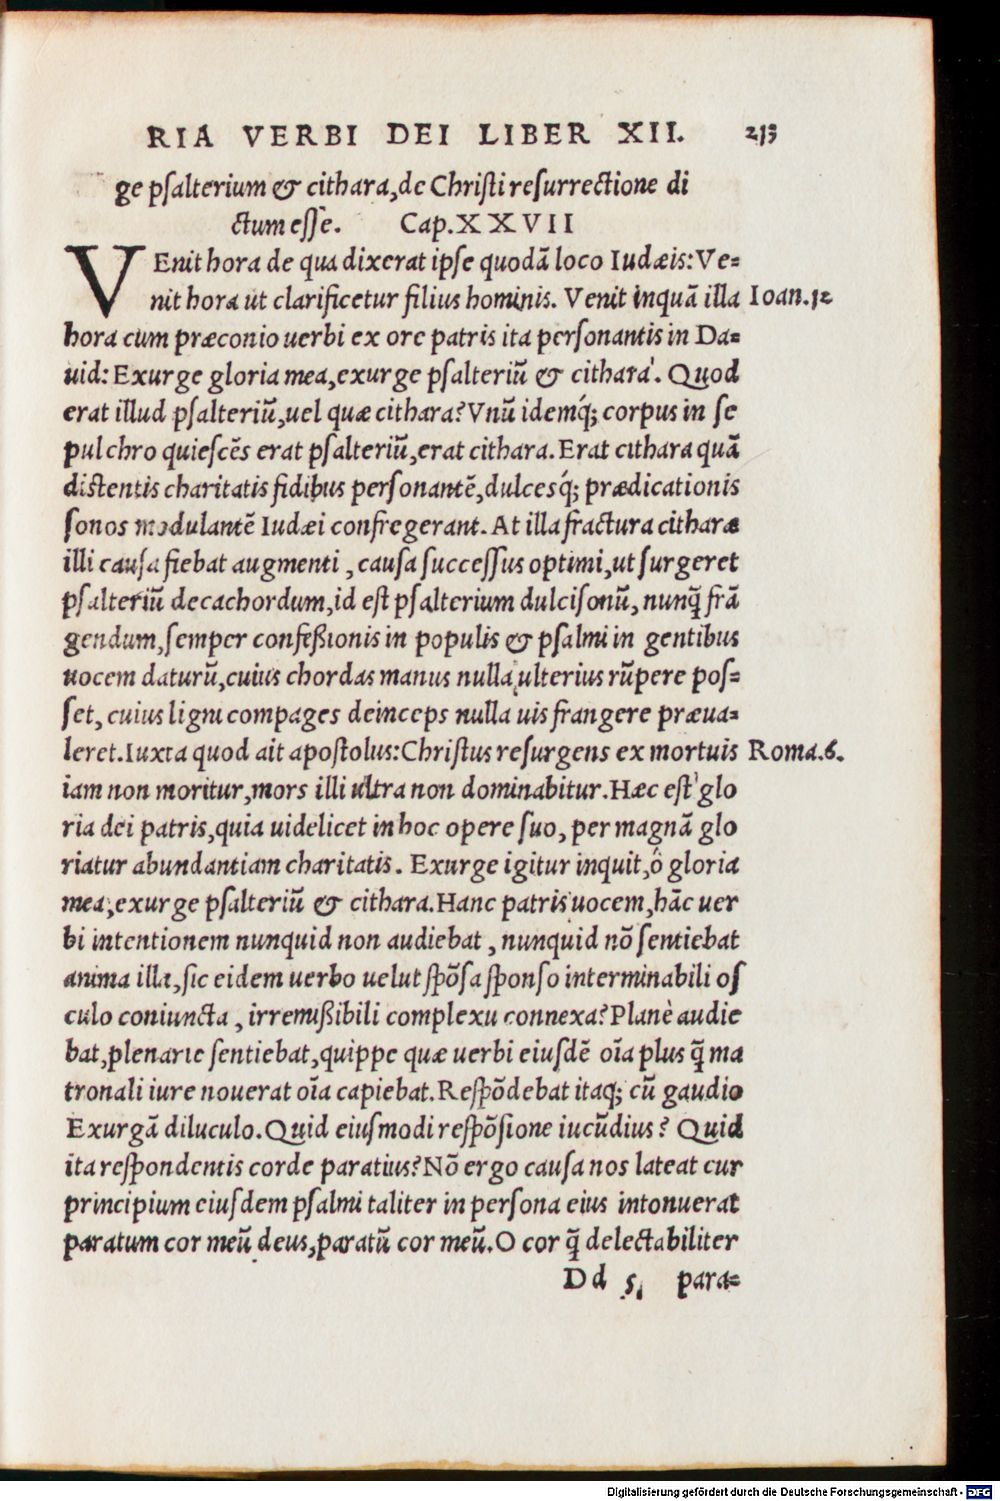 RIA VERBI DEI LIBER XII. 213
ge psalterium & cithara, de Christi resurrectione di
ctum esse. Cap. XXVII
VEnit hora de qua dixerat ipse quodã loco Iudæis: Ve=
nit hora ut clarificetur filius hominis. Venit inquã illa Ioan.12
hora cum præconio uerbi ex ore patris ita personantis in Da=
uid: Exurge gloria mea, exurge psalteriũ & cithara. Quod
erat illud psalteriũ, uel quæ cithara? Vnũ idemq́; corpus in se
pulchro quiescẽs erat psalteriũ, erat cithara. Erat cithara quã
distentis charitatis fidibus personantẽ, dulcesq́; prædicationis
sonos modulantẽ Iudæi confregerant. At illa fractura citharæ
illi causa fiebat augmenti, causa successus optimi, ut surgeret
psalteriũ decachordum, id est psalterium dulcisonũ, nunq̃ frã
gendum, semper confeßionis in populis & psalmi in gentibus
uocem daturũ, cuius chordas manus nulla ulterius rũpere pos=
set, cuius ligni compages deinceps nulla uis frangere præua=
leret. Iuxta quod ait apostolus: Christus resurgens ex mortuis Roma.6.
iam non moritur, mors illi ultra non dominabitur. Hæc est glo
ria dei patris, quia uidelicet in hoc opere suo, per magnã glo
riatur abundantiam charitatis. Exurge igitur inquit, ô gloria
mea, exurge psalteriũ & cithara. Hanc patris uocem, hãc uer
bi intentionem nunquid non audiebat, nunquid nõ sentiebat
anima illa, sic eidem uerbo uelut spõsa sponso interminabili os
culo coniuncta, irremißibili complexu connexa? Planè audie
bat, plenarie sentiebat, quippe quæ uerbi eiusdẽ oĩa plus q̃ ma
tronali iure nouerat oĩa capiebat. Respõdebat itaq; cũ gaudio
Exurgã diluculo. Quid eiusmodi respõsione iucũdius? Quid
ita respondentis corde paratius? Nõ ergo causa nos lateat cur
principium eiusdem psalmi taliter in persona eius intonuerat
paratum cor meũ deus, paratũ cor meũ. O cor q̃ delectabiliter
Dd 5 para=
Digitalisierung gefördert durch die Deutsche Forschungsgemeinschaft - DFG